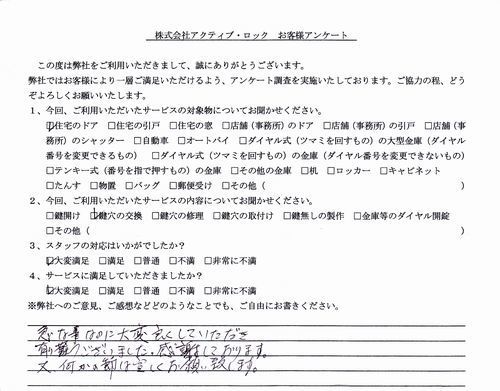 株式会社アクティブ・ロック お客様アンケート
この度は弊社をご利用いただきまして、誠にありがとうございます。
弊社ではお客様により一層ご満足いただけるよう、アンケート調査を実施いたしております。ご協力の程、どう
ぞよろしくお願いいたします。
1、今回、ご利用いただいたサービスの対象物についてお聞かせください。
☑住宅のドア □住宅の引戸 □住宅の窓 □店舗(事務所)のドア □店舗(事務所)の引戸 □店舗(事
務所)のシャッター □自動車 □オートバイ □ダイヤル式(ツマミを回すもの)の大型金庫(ダイヤル
番号を変更できるもの) □ダイヤル式(ツマミを回すもの)の金庫(ダイヤル番号を変更できないもの)
□テンキー式(番号を指で押すもの)の金庫 □その他の金庫 □机 □ロッカー □キャビネット
□たんす □物置 □バッグ □郵便受け □その他( )
2、今回、ご利用いただいたサービスの内容についてお聞かせください。
□鍵開け ☑鍵穴の交換 □鍵穴の修理 □鍵穴の取付け □鍵無しの製作 □金庫等のダイヤル開錠
□その他( )
3、スタッフの対応はいかがでしたか?
☑大変満足 □満足 □普通 □不満 □非常に不満
4、サービスに満足していただきましたか?
☑大変満足 □満足 □普通 □不満 □非常に不満
※弊社へのご意見、ご感想などどのようなことでも、ご自由にお書きください。
急な事なのに大変良くしていただき
有り難うございました。感謝しております。
又、何かの節は宜しくお願い致します。